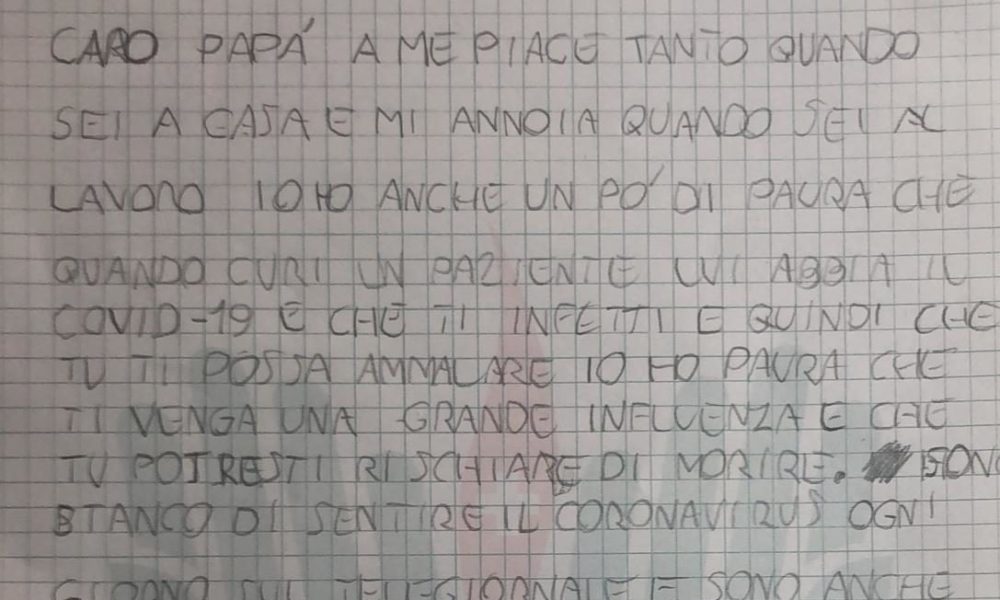 CARO PAPÁ A ME PIACE TANTO QUANDO
SEI A CASA E MI ANNOIA QUANDO SEI AL
LAVORO IO HO ANCHE UN PO' DI PAURA CHE
QUANDO CURI UN PAZIENTE LUI ABBIA IL
COVID-19 E CHE TI INFETTI E QUINDI CHE
TU TI POSSA AMMALARE IO HO PAURA CHE
TI VENGA UNA GRANDE INFLUENZA E CHE
TU POTRESTI RISCHIARE DI MORIRE. SONO
STANCO DI SENTIRE IL CORONAVIRUS OGNI
GIORNO SUL TELEGIORNALE E SONO ANCHE